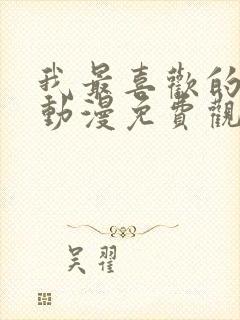 我最喜歡的
動漫免費觀
吴翟